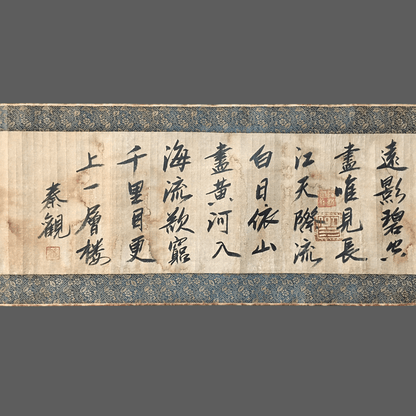 遠影碧空
盡唯見長
江天際流
白日依山
盡黄河入
海流欲窮
千里目更
上一層楼
秦觀